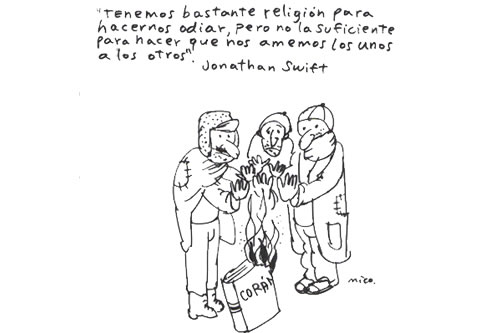 "Tenemos bastante religión para
hacernos odiar, pero no la suficiente
para hacer que nos amemos los unos
a los otros".
Jonathan Swift
CORÁN
mico.